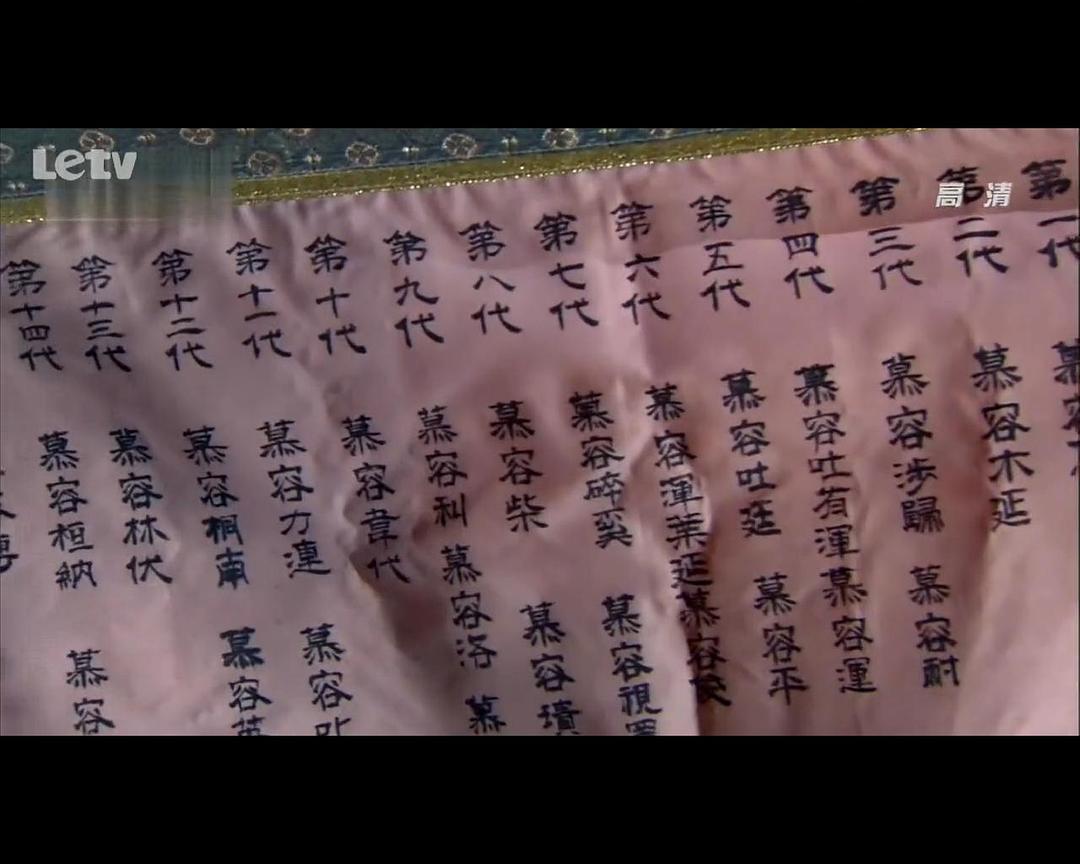 Letv
高清
第一代
第二代 慕容木延
第三代 慕容涉歸 慕容耐
第四代 慕容吐有渾 慕容運
第五代 慕容吐廷 慕容平
第六代 慕容渾葉延 慕容
第七代 慕容碎奚 慕容視
第八代 慕容柴 慕容璝
第九代 慕容利 慕容洛 慕
第十代 慕容韋代
第十一代 慕容力 慕容
第十二代 慕容桐南 慕容英
第十三代 慕容林伏
第十四代 慕容桓納 慕容